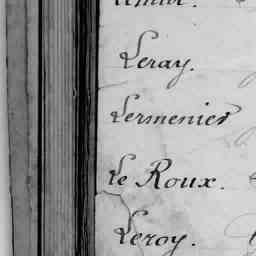 Leray.
Lermenier
Le Roux.
Leroy.